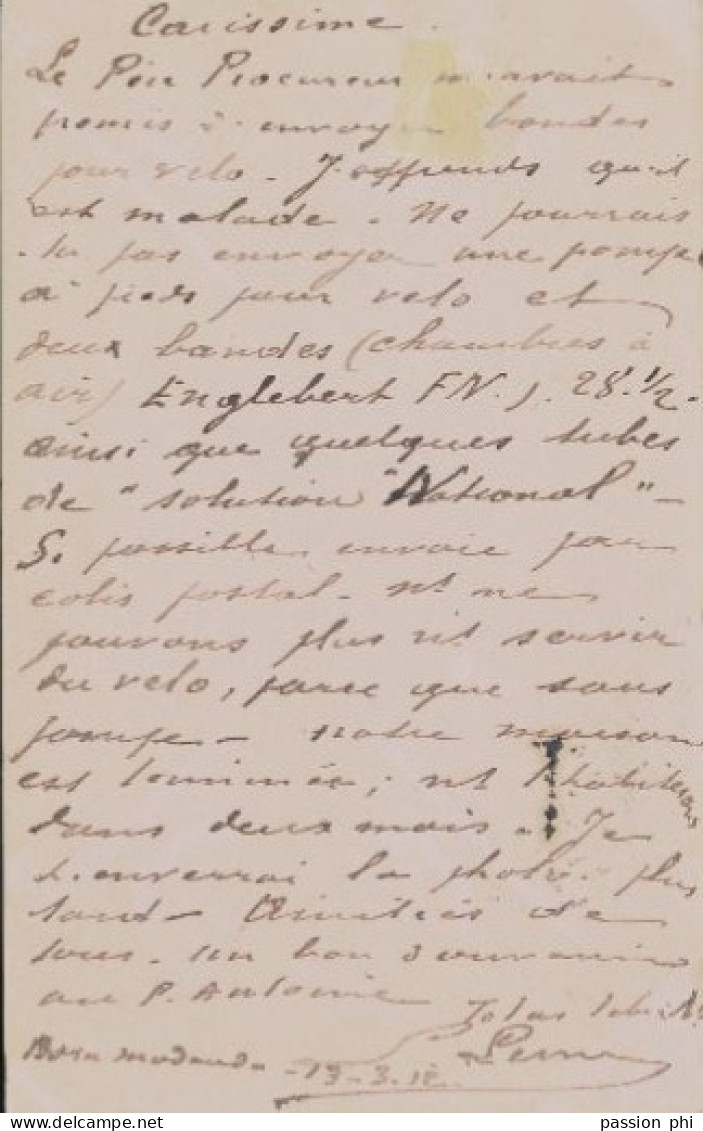 Carissime.
Le Père Procureur m'avait
promis d'envoyer bandes
pour velo. J'apprends qu'il
est malade. Ne pourrais
-tu pas envoyer une pompe
à pieds pour velo et
deux bandes (chambres à
air) Englebert F.N.). 28.1/2.
ainsi que quelques tubes
de "solution "National" -
Si possible, envoie par
colis postal - ns ne
pouvons plus ns servir
du velo, parce que sans
pompe - notre maison
est terminée; ns l'habiterons
dans deux mois. Je
t'enverrai la photo plus
tard - Amitiés de
tous. un bon souvenir
au P. Antoine
Totus tibi
-13-3.12.
passion phi